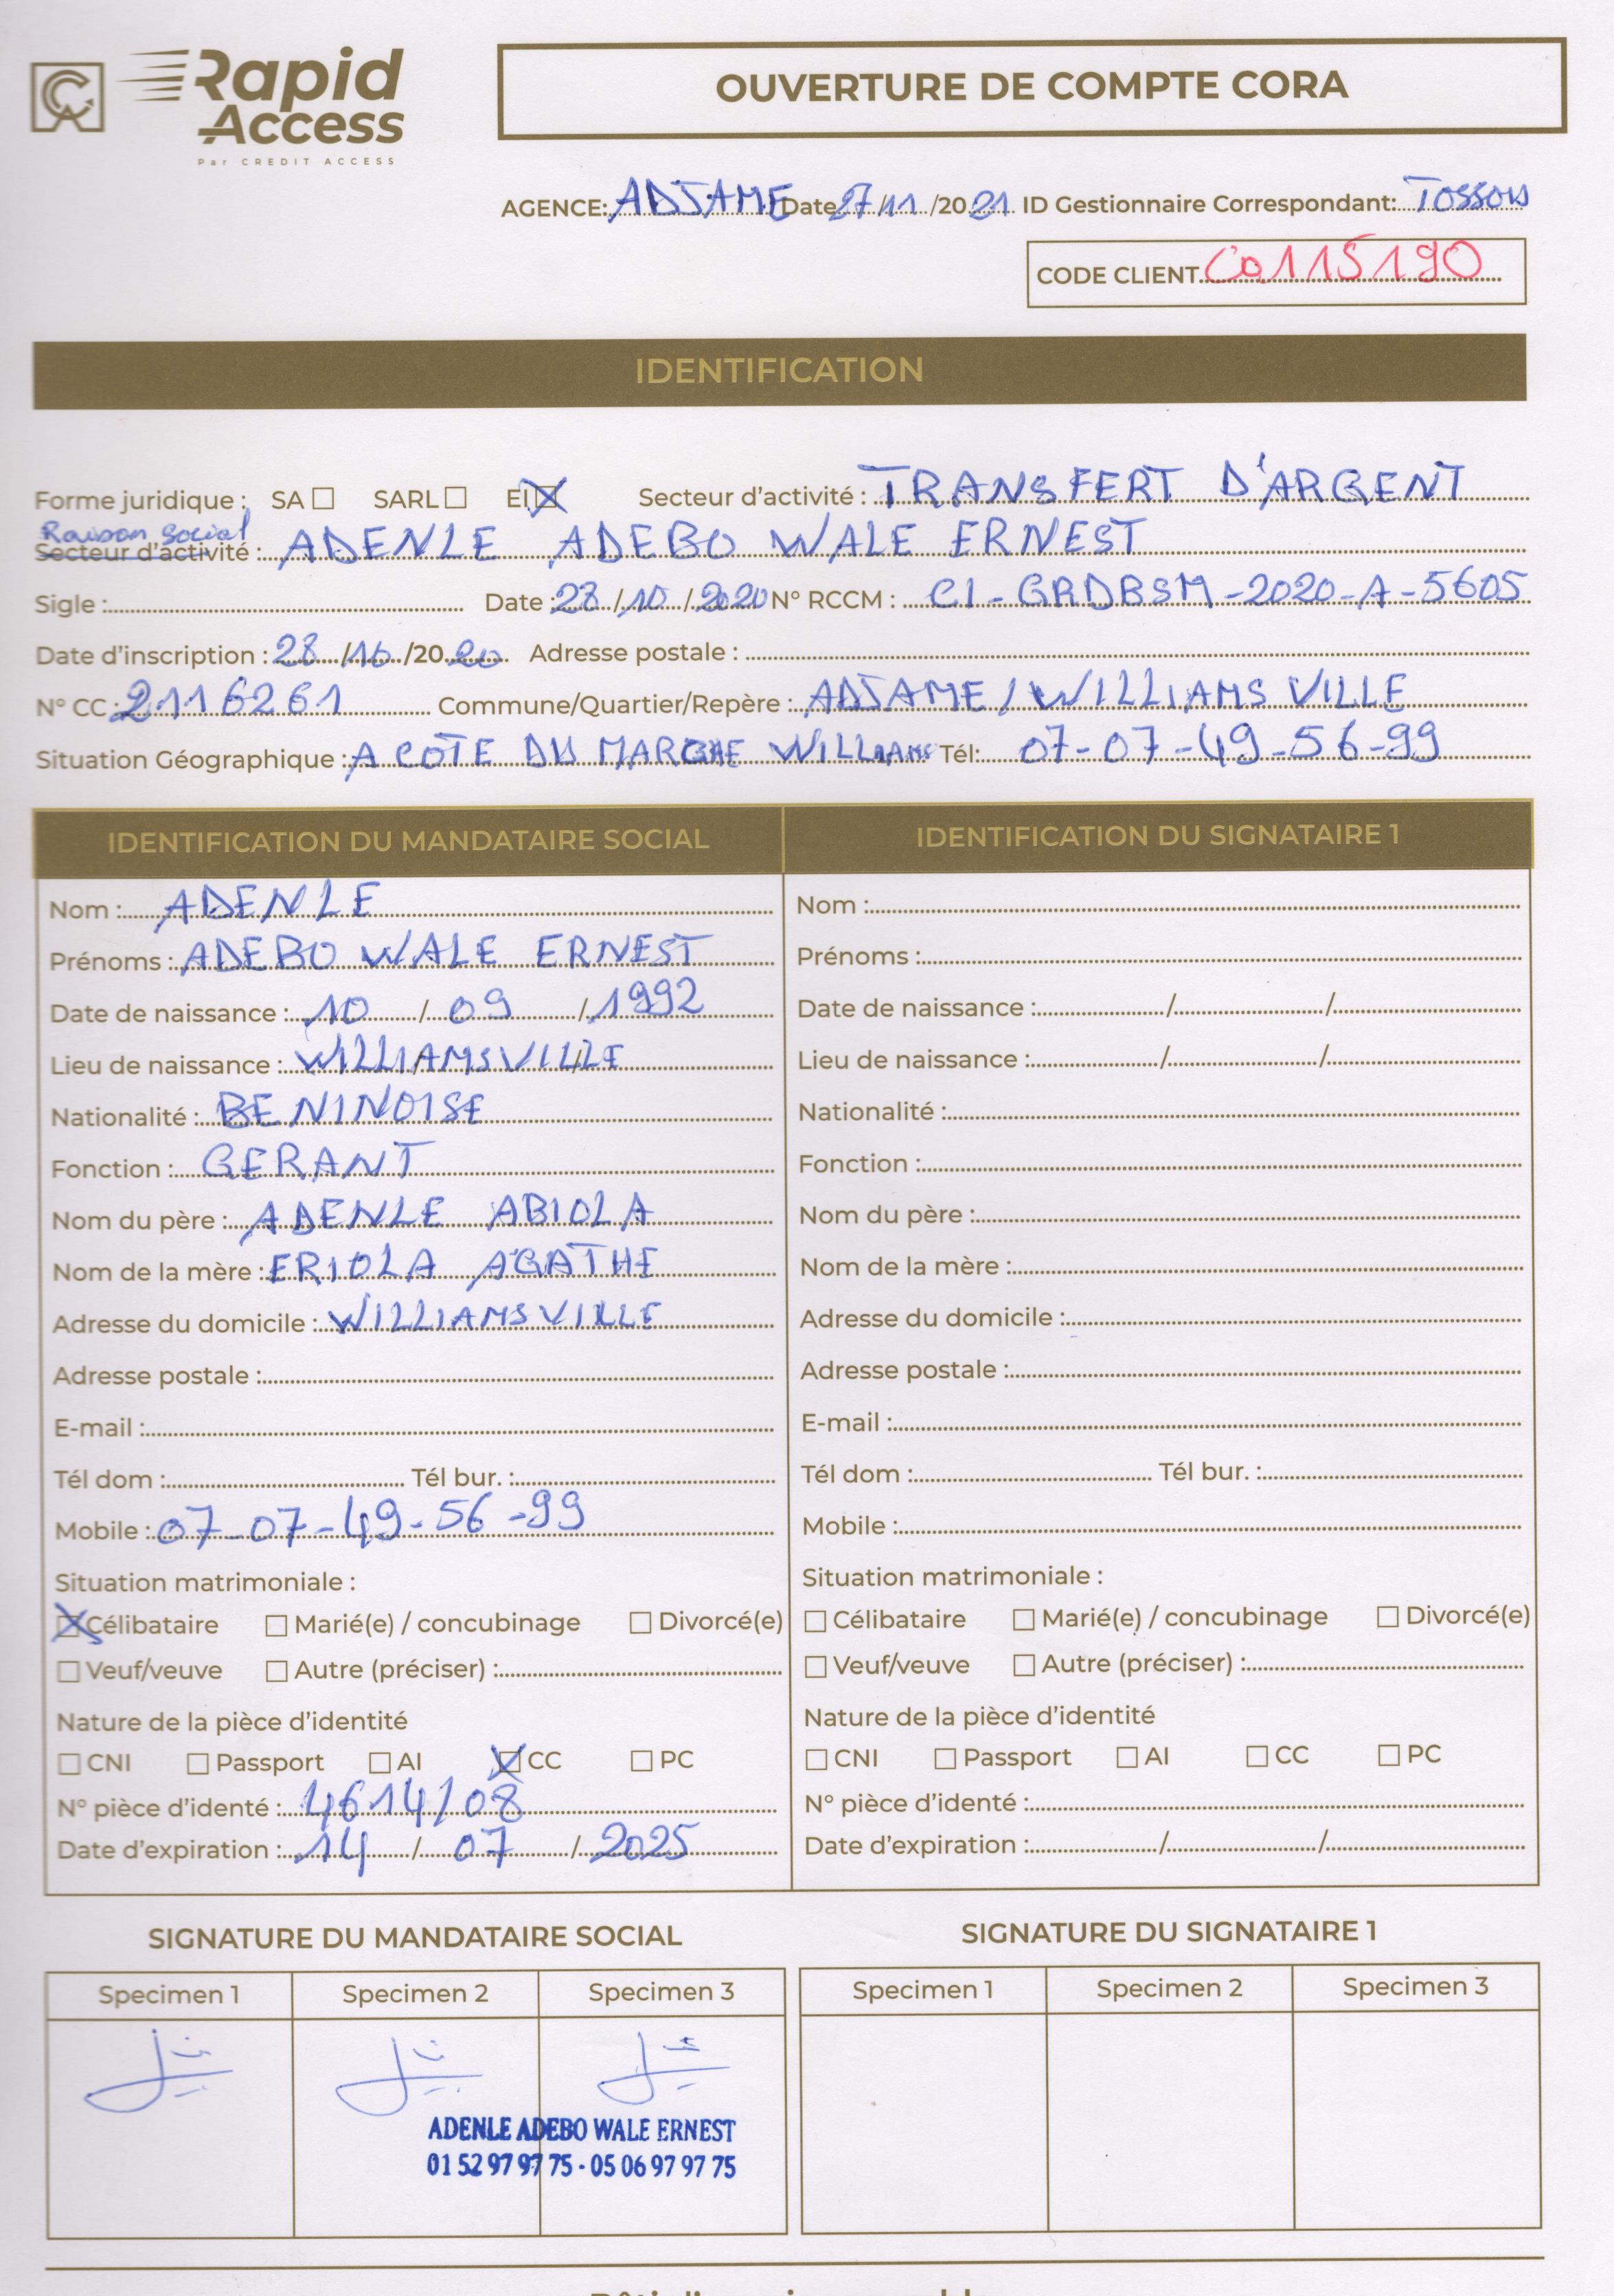 Rapid
Access
Par CREDIT ACCESS
OUVERTURE DE COMPTE CORA
AGENCE: ADJAME Date 27/11/2021 ID Gestionnaire Correspondant: TOSSOU
CODE CLIENT Co115190
IDENTIFICATION
Forme juridique : SA ☐ SARL ☐ EI ☒ Secteur d'activité : TRANSFERT D'ARGENT
Raison Social
Secteur d'activité : ADENLE ADEBO WALE ERNEST
Sigle : Date : 28/10/2020 N° RCCM : CI-GRDBSM-2020-A-5605
Date d'inscription : 28/10/2020 Adresse postale :
N° CC : 2116261 Commune/Quartier/Repère : ADJAME / WILLIAMS VILLE
Situation Géographique : A COTE DU MARCHE WILLIAMS Tél: 07-07-49-56-99
IDENTIFICATION DU MANDATAIRE SOCIAL
Nom : ADENLE
Prénoms : ADEBO WALE ERNEST
Date de naissance : 10 / 09 / 1992
Lieu de naissance : WILLIAMSVILLE
Nationalité : BENINOISE
Fonction : GERANT
Nom du père : ADENLE ABIOLA
Nom de la mère : ERIOLA AGATHE
Adresse du domicile : WILLIAMSVILLE
Adresse postale :
E-mail :
Tél dom : Tél bur. :
Mobile : 07-07-49-56-99
Situation matrimoniale :
☒ Célibataire ☐ Marié(e) / concubinage ☐ Divorcé(e)
☐ Veuf/veuve ☐ Autre (préciser) :
Nature de la pièce d'identité
☐ CNI ☐ Passport ☐ AI ☒ CC ☐ PC
N° pièce d'identé : 4614/08
Date d'expiration : 14 / 07 / 2025
IDENTIFICATION DU SIGNATAIRE 1
Nom :
Prénoms :
Date de naissance : / /
Lieu de naissance : / /
Nationalité :
Fonction :
Nom du père :
Nom de la mère :
Adresse du domicile :
Adresse postale :
E-mail :
Tél dom : Tél bur. :
Mobile :
Situation matrimoniale :
☐ Célibataire ☐ Marié(e) / concubinage ☐ Divorcé(e)
☐ Veuf/veuve ☐ Autre (préciser) :
Nature de la pièce d'identité
☐ CNI ☐ Passport ☐ AI ☐ CC ☐ PC
N° pièce d'identé :
Date d'expiration : / /
SIGNATURE DU MANDATAIRE SOCIAL
Specimen 1 Specimen 2 Specimen 3
ADENLE ADEBO WALE ERNEST
01 52 97 97 75 - 05 06 97 97 75
SIGNATURE DU SIGNATAIRE 1
Specimen 1 Specimen 2 Specimen 3